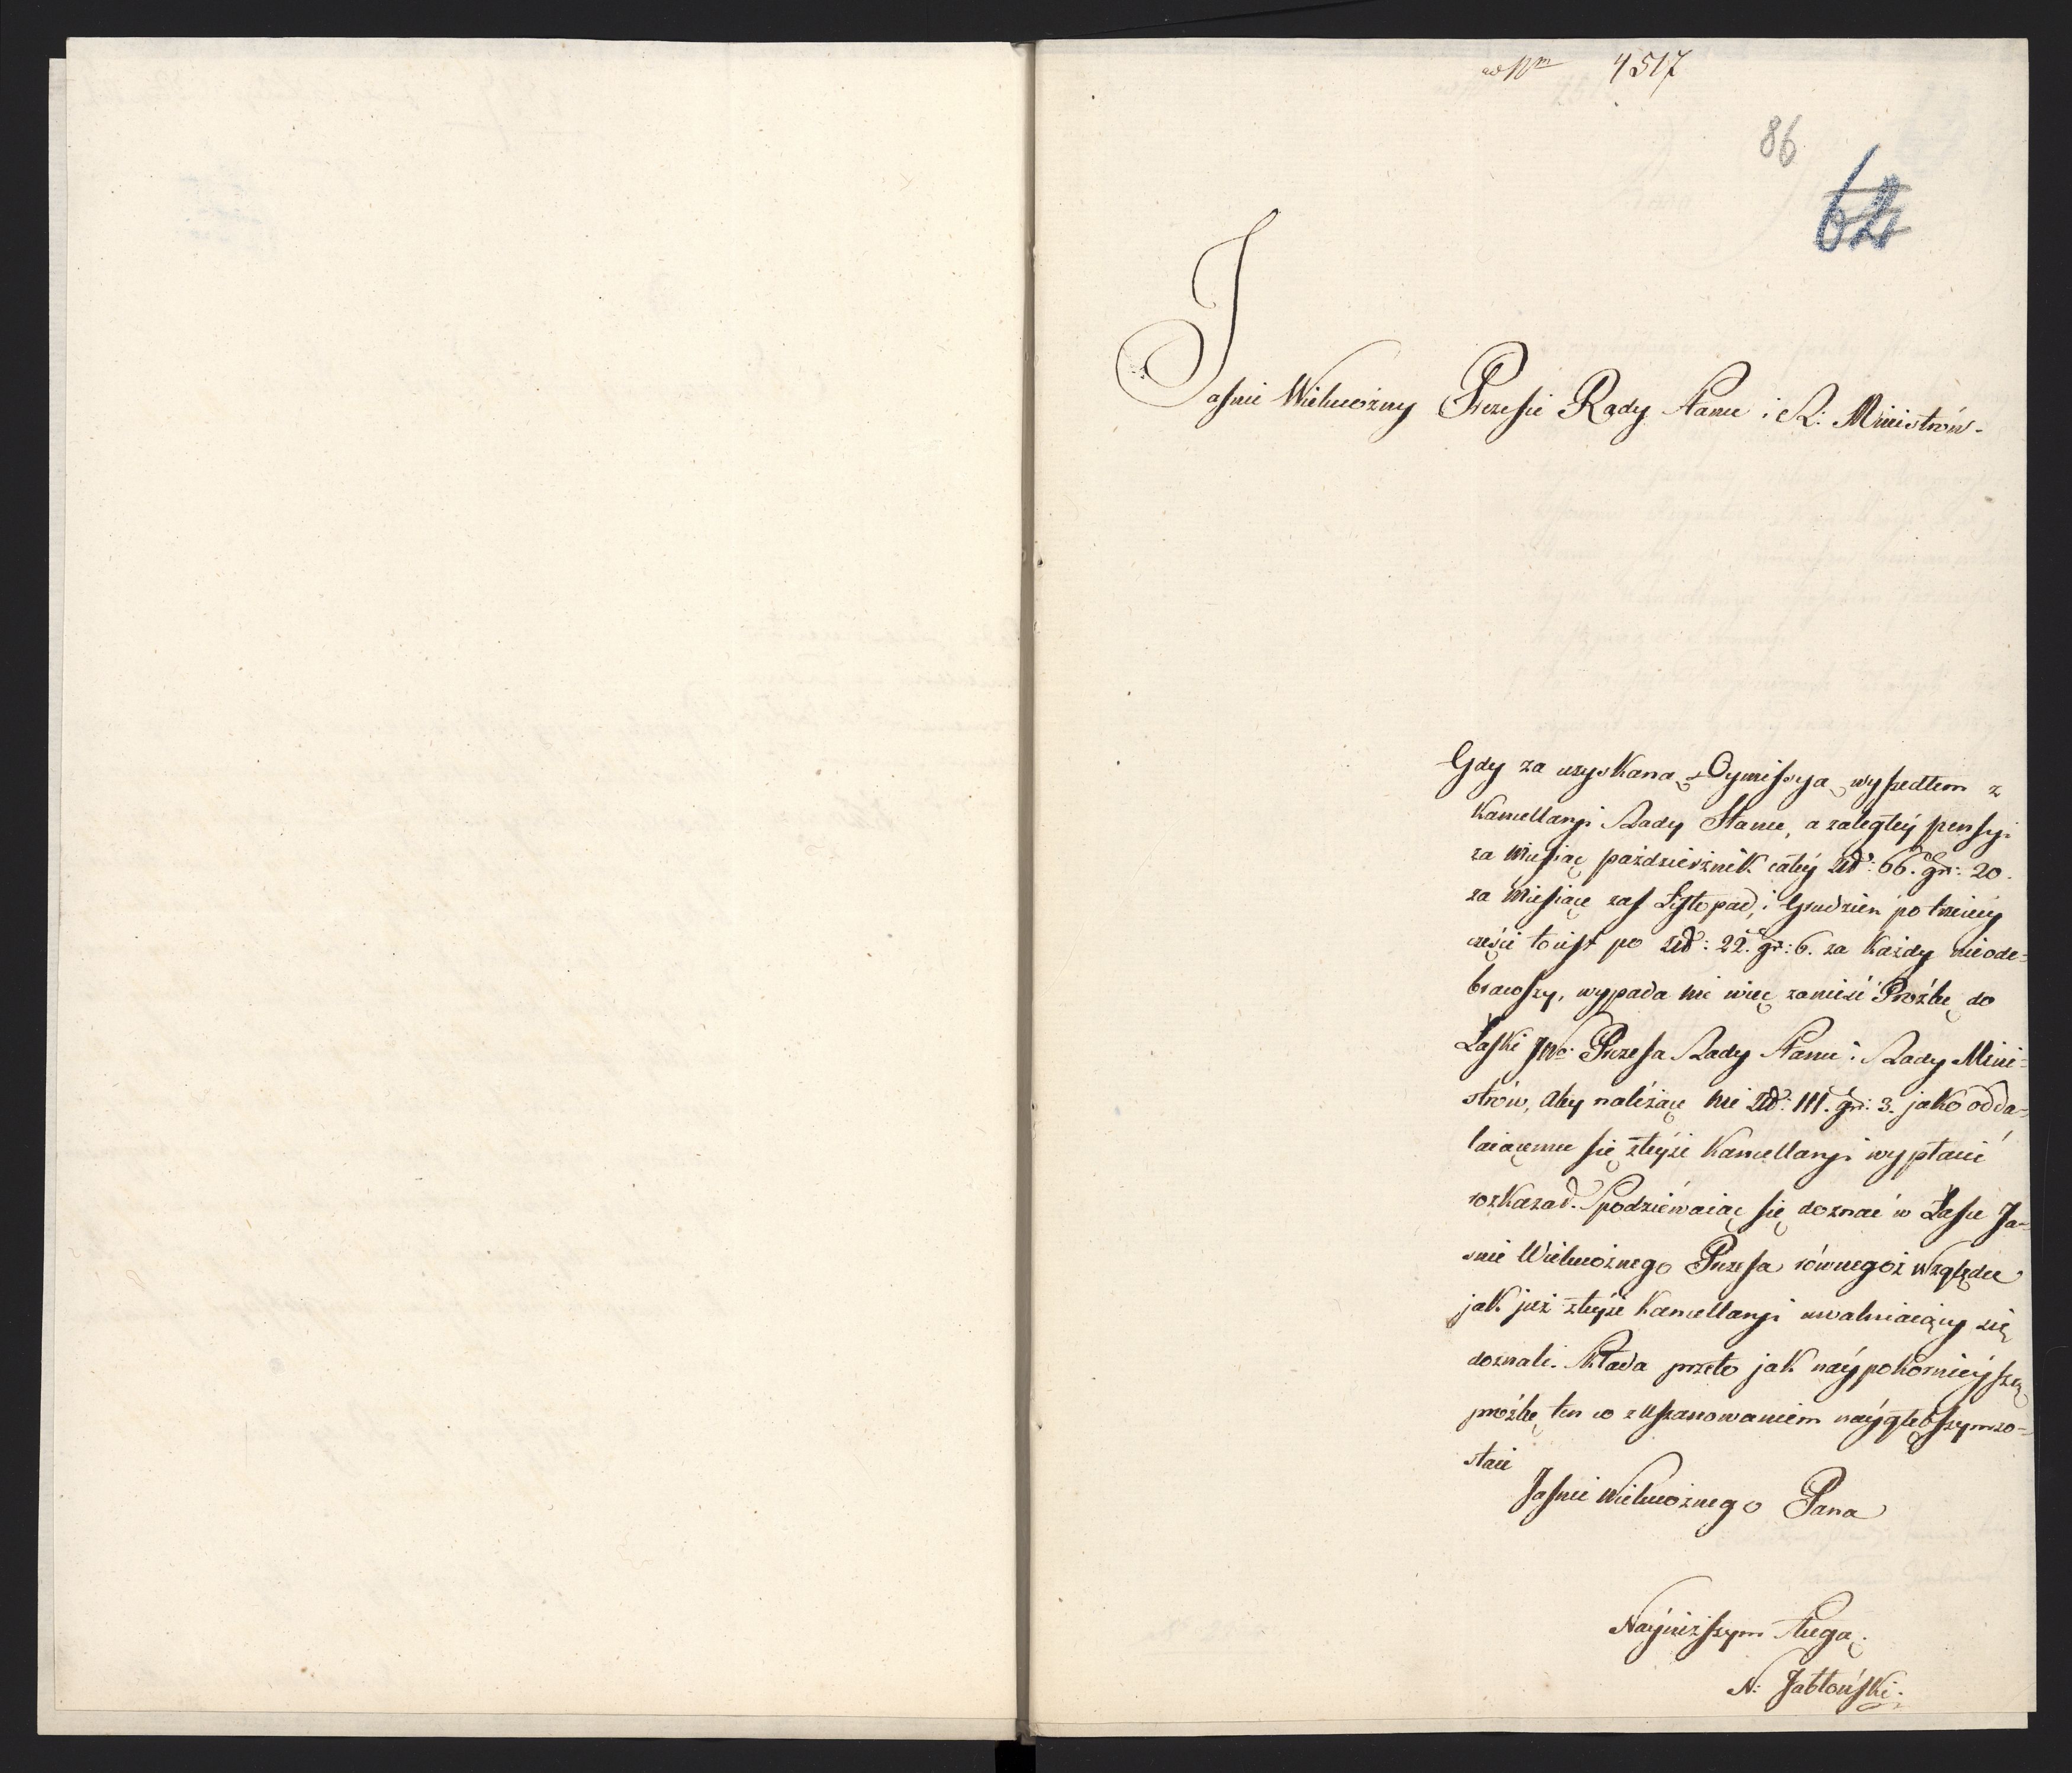 ad Nrm 4517
86
62
Jaśnie Wielmożny Prezesie Rady Stanu i R: Ministrów.
Gdy za uzyskaną Dymissyą wyszedłem z
Kancellaryi Rady Stanu, a zaległéy pensyi
za Miesiąc październik całéy Złł: 66. gr: 20.
za Miesiące zaś Listopad, i Grudzień po trzeciéy
części to iest po Złł: 22. gr: 6. za każdy nieode-
brawszy, wypada mi więc zanieść Prożbę do
Łaski JWo. Prezesa Rady Stanu i Rady Mini-
strów, Aby należące mi Złł: 111. gr: 3. jako odda-
laiącemu się z téyże Kancellaryi wypłacić
rozkazał. Spodziéwaiąc się doznać w Łasce Ja-
śnie Wielmożnego Prezesa równegoż względu
jak już z téyże Kancellaryi uwalniaiący się
doznali. Składa przeto jak naypokornieyszą
prożbę ten co z uszanowaniem naygłębszym zo-
staie
Jaśnie Wielmożnego Pana
Nayniższym sługą.
N: Jabłoński.